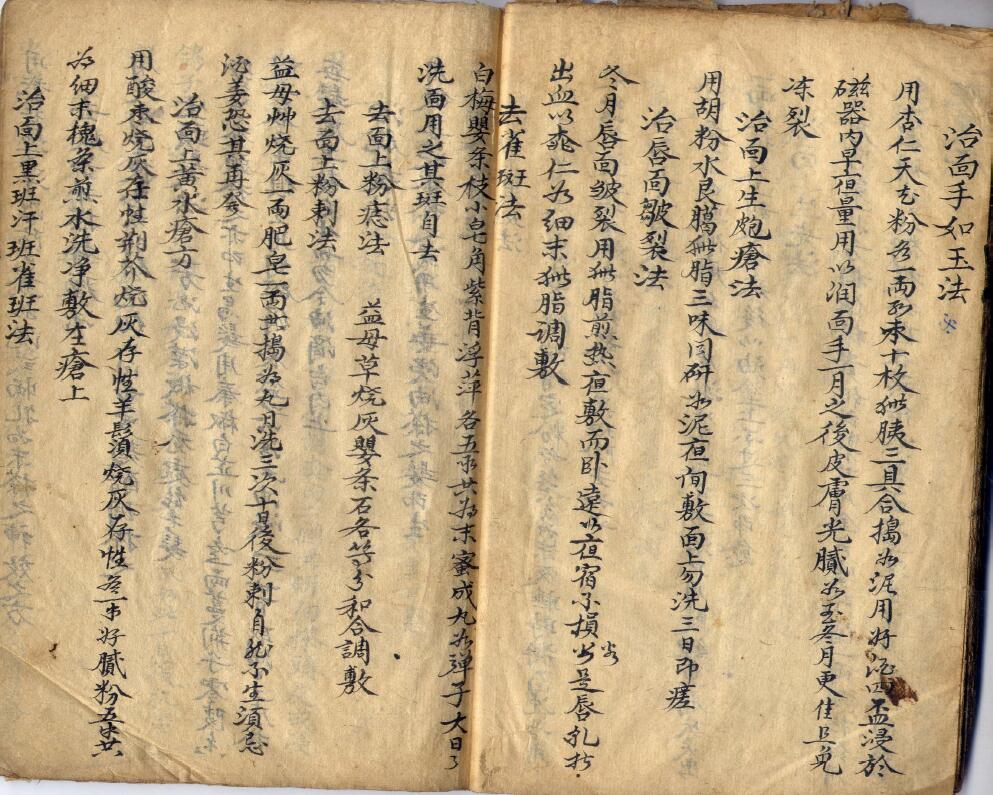 治面手如玉法
用杏仁天花粉各一両紅枣十枚猪胰三具合搗如泥用好酒四盃浸於
磁器内早但量用以润面手一月之後皮膚光膩如玉冬月更佳且免
冻裂
治面上生皰瘡法
用胡粉水艮臈猪脂三味同研如泥夜间敷面上勿洗三日即瘥
治唇面皴裂法
冬月唇面皴裂用猪脂煎热夜敷而卧遠以夜宿不損岩若是唇孔折
出血以桃仁为细末猪脂調敷
去雀斑法
白梅嬰条枝小皂角紫背浮萍各五求共为末蜜成丸如弹子大日々
洗面用之其斑自去
去面上粉痣法
益母草烧灰嬰条石各等分和合調敷
去面上粉刺法
益母艸烧灰一両肥皂一両共搗为丸日洗三次十日後粉刺自然不生須忌
酒姜恐其再発
治面上黄水瘡方
用酸枣烧灰存性荆芥烧灰存性羊鬚烧灰存性各一 好膩粉五 共
为细末槐条煎水洗净敷在瘡上
治面上黑班汗班雀班法